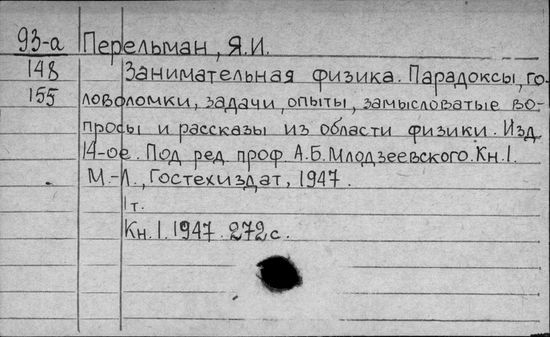 93-а Перельман, Я.И.
148 Занимательная физика. Парадоксы, го-
155 ловоломки, задачи, опыты, замысловатые во-
просы и рассказы из области физики. Изд.
14-ое. Под ред. проф. А.Б. Млодзеевского. Кн. I.
М.-Л., Гостехиздат, 1947.
1т.
Кн. I. 1947. 272с.